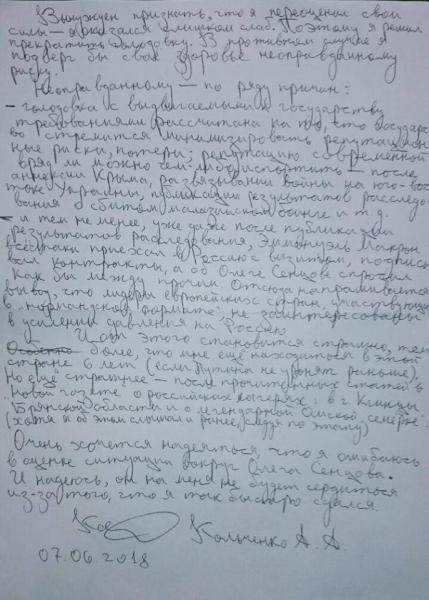 Вынужден признать, что я переоценил свои
силы — я оказался слишком слаб. Поэтому я решил
прекратить голодовку. В противном случае я
подверг бы своё здоровье неоправданному
риску.
Неоправданному — по ряду причин:
- голодовка с выдвигаемыми государству
требованиями рассчитана на то, что государст-
во стремится минимизировать репутацион-
ные риски, потери; репутацию современной
вряд ли можно чем-либо испортить — после
аннексии Крыма, развязывании войны на юго-вос-
токе Украины, публикации результатов расследо-
вания о сбитом малазийском боинге и т.д.
- и тем не менее, уже даже после публикации
результатов расследования, Эммануэль Макрон
всё-таки приехал в Россию с визитом, подписы-
вал контракты, а об Олеге Сенцове спросил
как бы между прочим. Отсюда напрашивается
вывод, что лидеры европейских стран, участвующих
в "нормандском формате", не заинтересованы
в усилении давления на Россию
И от этого становится страшно, тем
более, что мне ещё находиться в этой
стране 6 лет (если Путина не уронят раньше),
Но ещё страшнее — после прочитанных статей в
"Новой газете" о российских лагерях: в г. Клинцы
(Брянской области) и о легендарной Омской "семёрке"
(хотя и об этом слышал и ранее, следуя по этапу)
Очень хочется надеяться, что я ошибаюсь
в оценке ситуации вокруг Олега Сенцова.
И надеюсь, он на меня не будет сердиться
из-за того, что я так быстро сдался.
Кольченко А. А.
07.06.2018